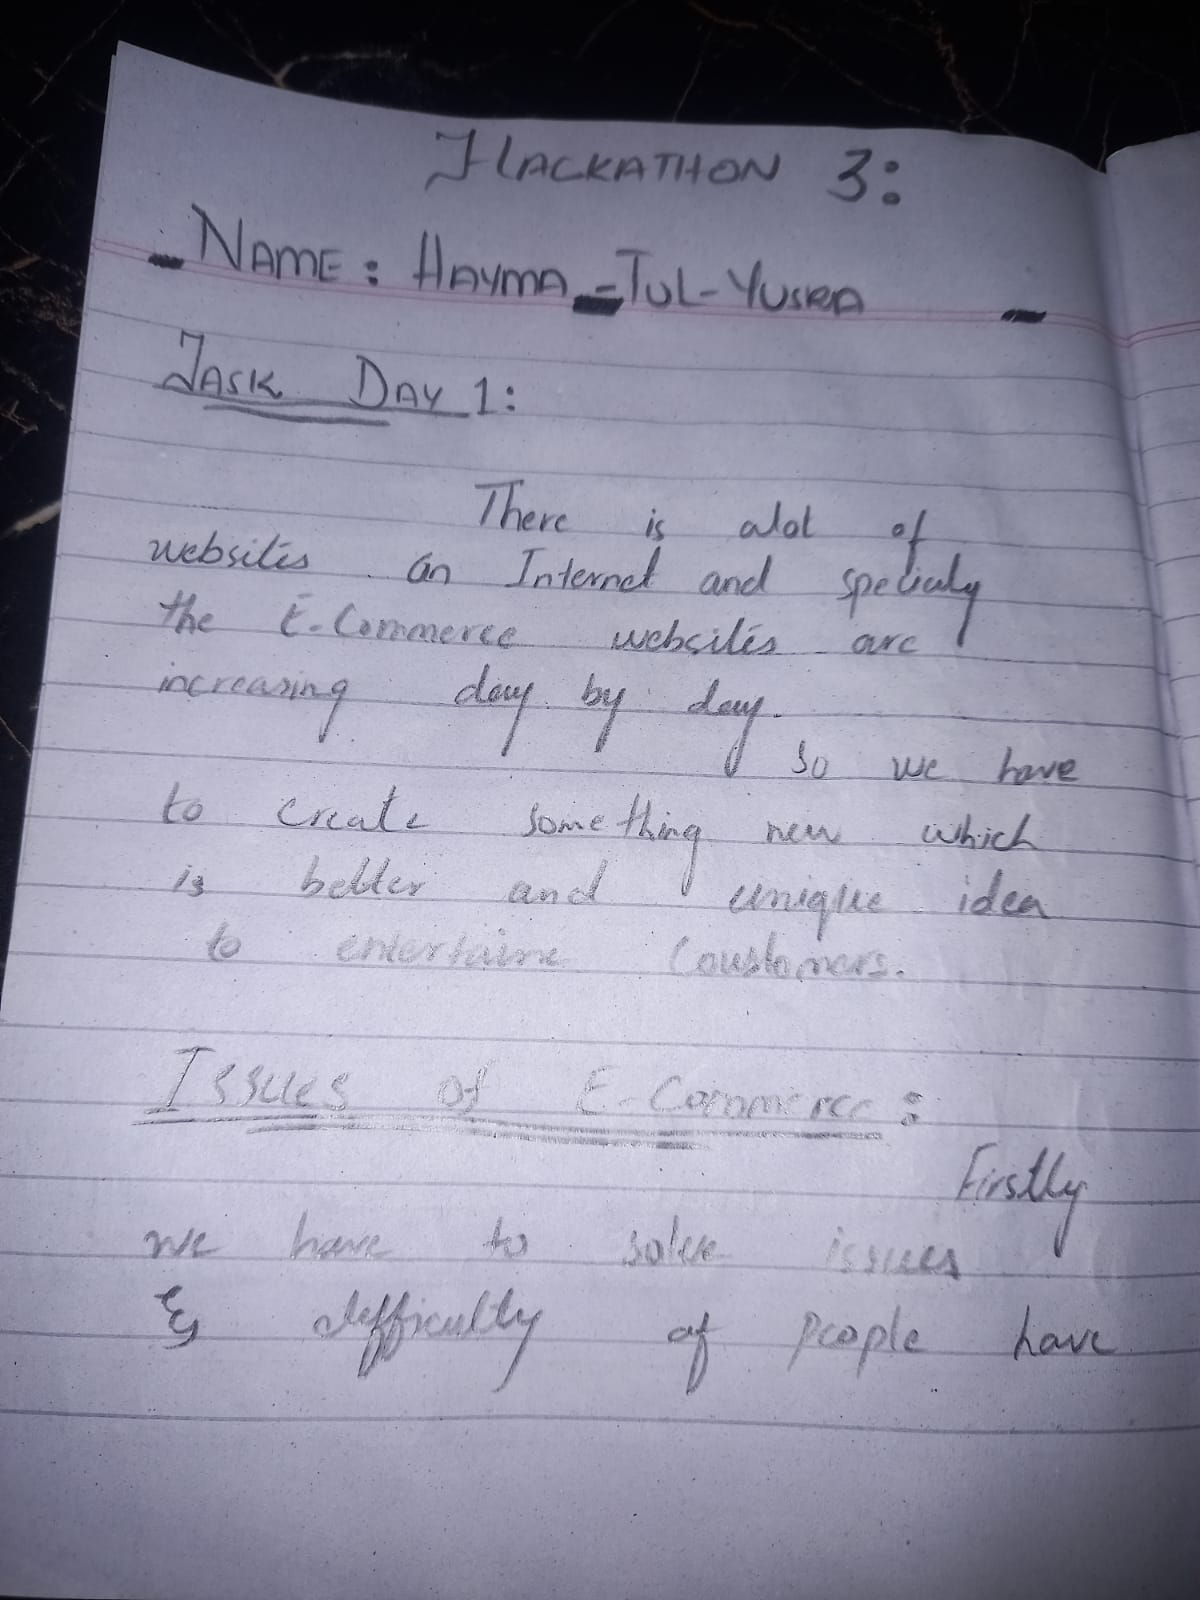 HACKATHON 3:
NAME: HAYMA-TUL-YUSRA
TASK DAY 1:
There is alot of
websites on Internet and specialy
the E-Commerce websites are
increasing day by day.
So we have
to create something new which
is better and unique idea
to entertaine Coustomers.
Issues of E-Commerce:
Firstly
we have to solve issues
& difficulty of people have